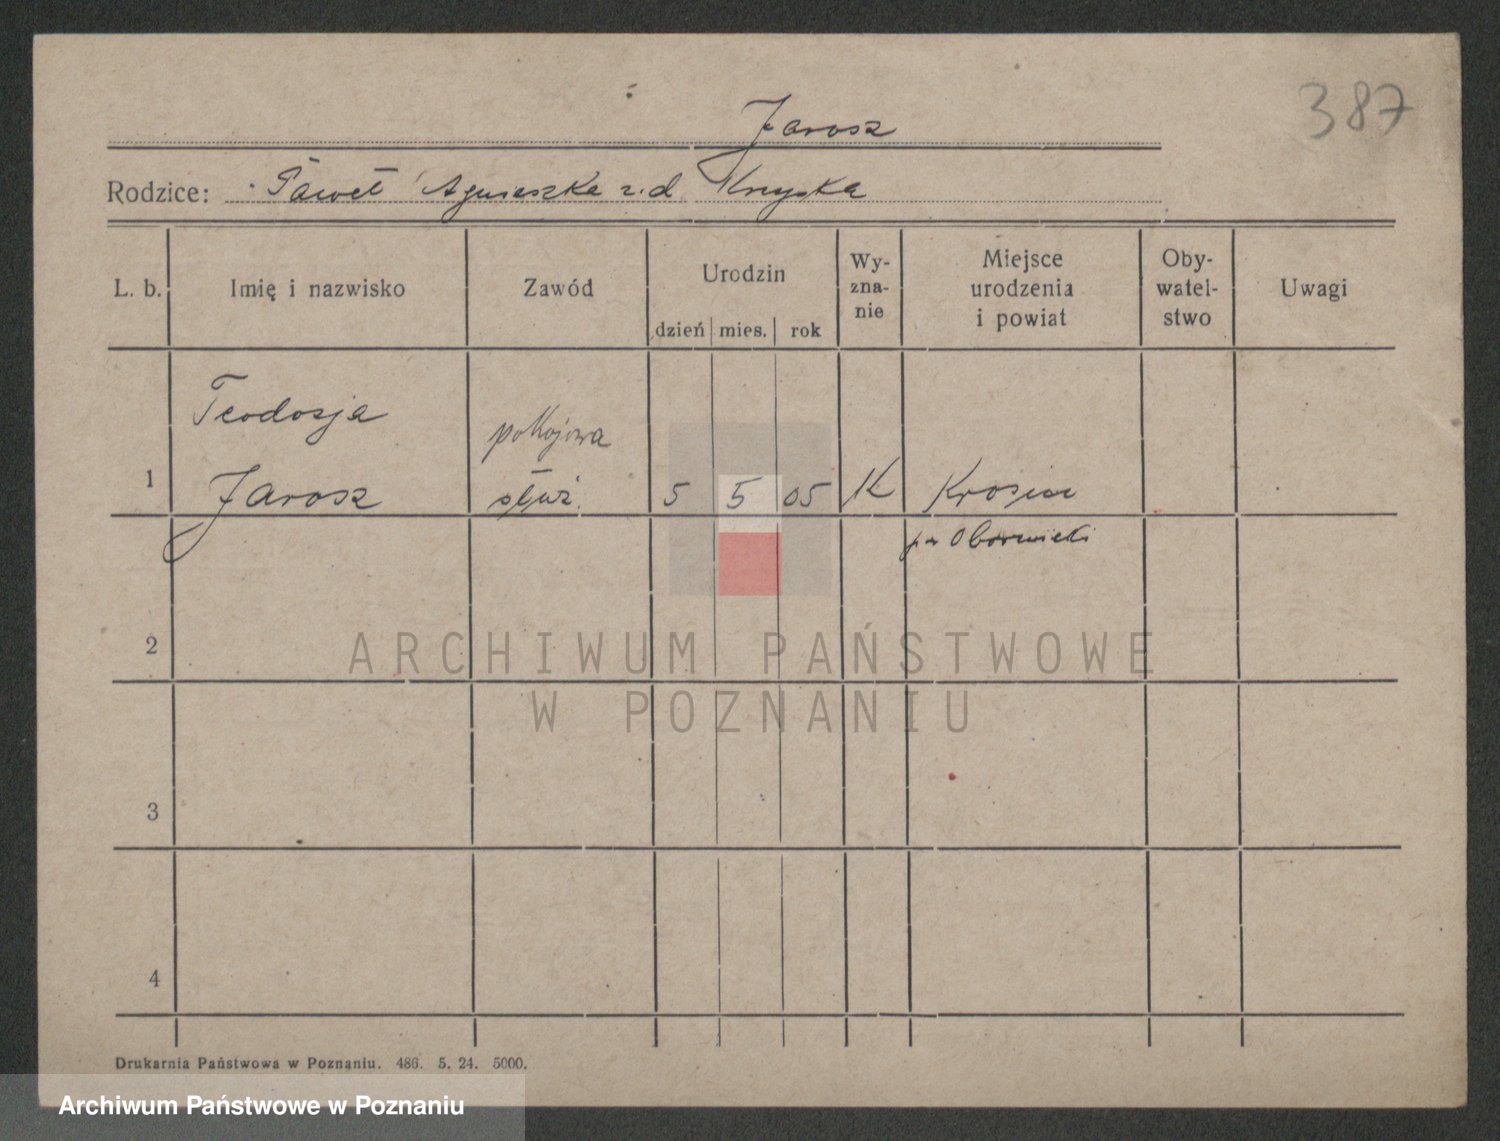 387
Jarosz
Rodzice: Paweł Agnieszka z. d.
L. b. Imię i nazwisko Zawód Urodzin dzień mies. rok Wy-zna-nie Miejsce urodzenia i powiat Oby-watel-stwo Uwagi
Teodozja
pokojowa
1 Jarosz służ. 5 5 05 K
Obornicki
2
3
4
ARCHIWUM PAŃSTWOWE
W POZNANIU
Drukarnia Państwowa w Poznaniu. 486. 5. 24. 5000.
Archiwum Państwowe w Poznaniu